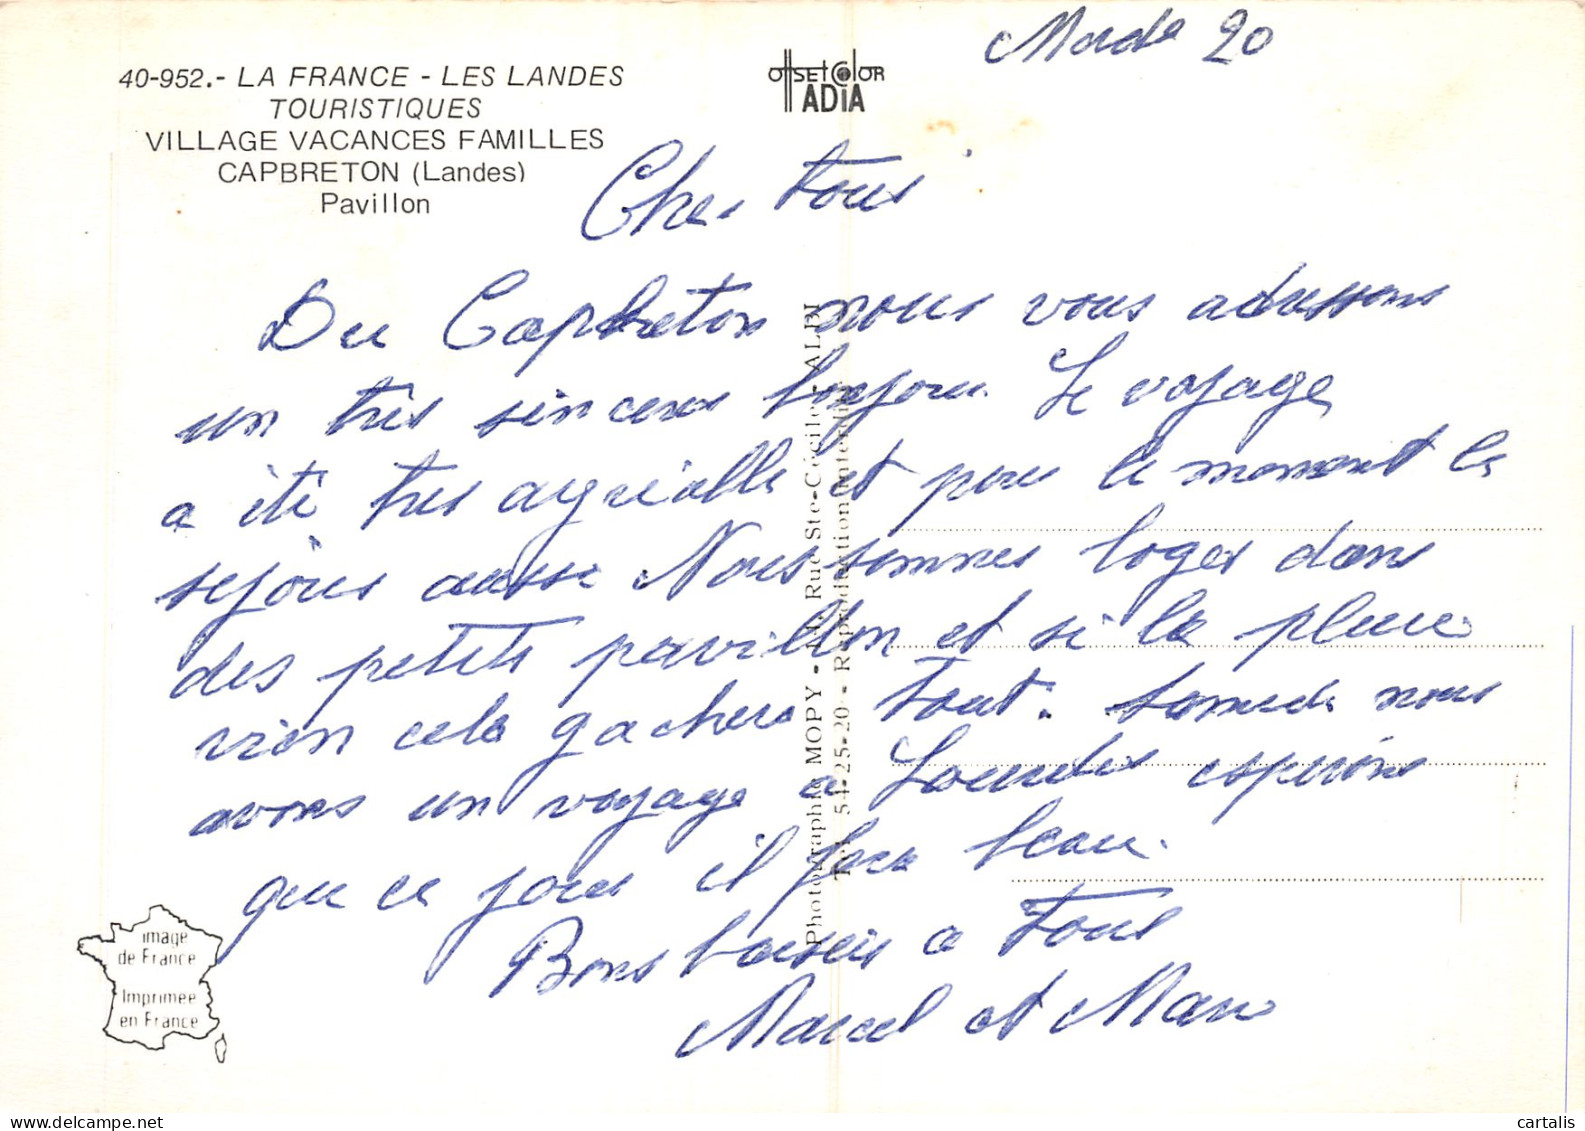 Mardi 20
40-952.- LA FRANCE - LES LANDES
TOURISTIQUES
VILLAGE VACANCES FAMILLES
CAPBRETON (Landes)
Pavillon
OFFSET COLOR
ADIA
Cher tous
Du Capbreton nous vous adressons
un très sincere bonjour. Le voyage
a été tres agréable et pour le moment le
sejour aussi Nous sommes loger dans
des petits pavillon et si la pluie
vien cela gachera tout. Samedi nous
avons un voyage a Lourdes esperons
que ce jour il fera beau.
Bons baisers a tous
Marcel et
Photographie MOPY - Rue Ste-Cécile - ALBI
54-25-20 - Reproduction interdite
image
de France
Imprimée
en France
cartalis